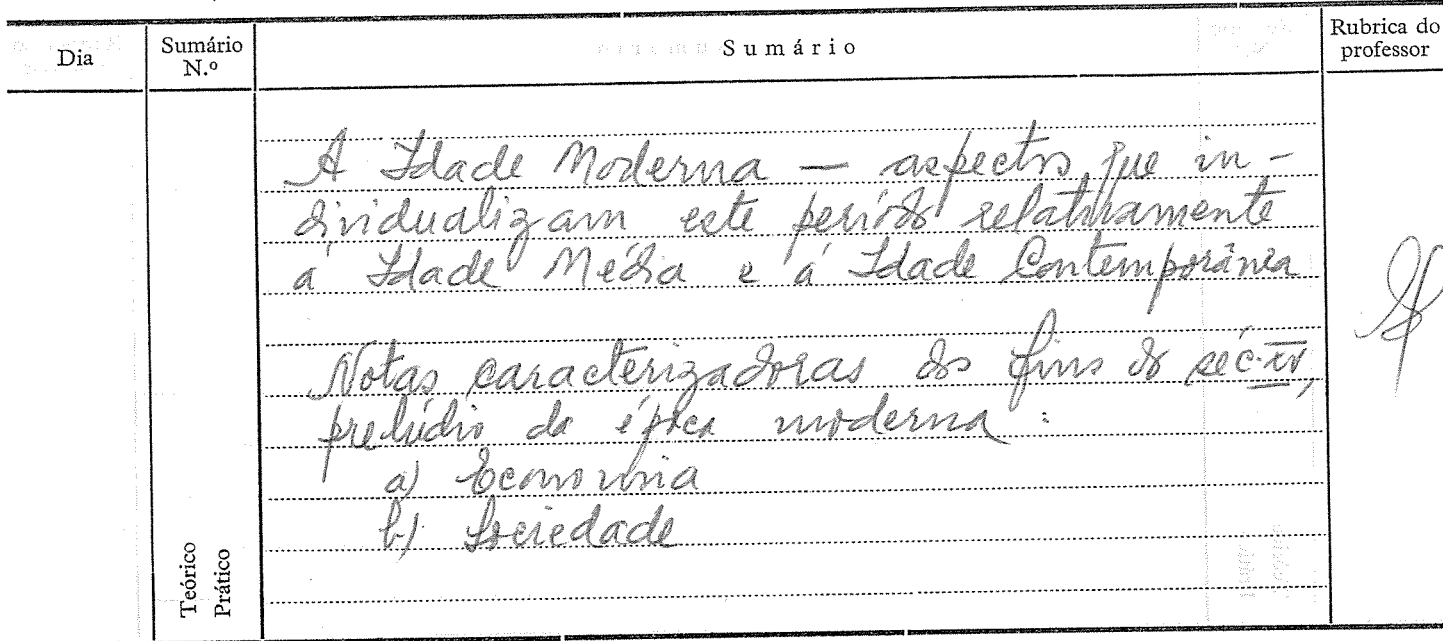 Dia
Sumário N.º
Sumário
Rubrica do professor
A Idade Moderna — aspectos que in-
dividualizam este período relativamente
à Idade Média e à Idade Contemporânea
Notas caracterizadoras dos fins do séc. XV,
prelúdio da época moderna:
a) Economia
b) Sociedade
Teórico
Prático